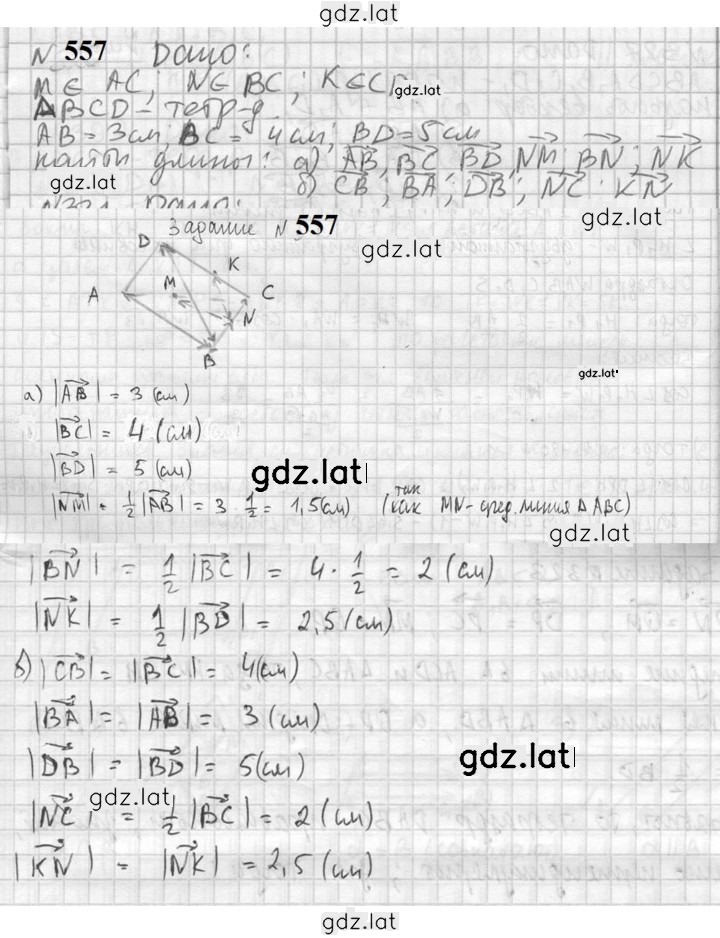 gdz.lat
№ 557 Дано:
M ∈ AC; N ∈ BC; K ∈ C
gdz.lat
ABCD – тетр-д
AB = 3 см, BC = 4 см; BD = 5 см
найти длины: а) AB, BC, BD, NM; BN; NK
gdz.lat
б) CB; BA; DB; NC; KN
gdz.lat
Задание № 557
gdz.lat
D
K
A M C
N
B
gdz.lat
а) |AB| = 3 (см)
|BC| = 4 (см)
|BD| = 5 (см)
gdz.lat
|NM| = 1/2 |AB| = 3 · 1/2 = 1,5(см) (так как MN – сред. линия Δ ABC)
|BN| = 1/2 |BC| = 4 · 1/2 = 2 (см)
|NK| = 1/2 |BD| = 2,5 (см)
б) |CB| = |BC| = 4(см)
|BA| = |AB| = 3 (см)
|DB| = |BD| = 5(см)
gdz.lat
gdz.lat
|NC| = 1/2 |BC| = 2 (см)
|KN| = |NK| = 2,5 (см)
gdz.lat